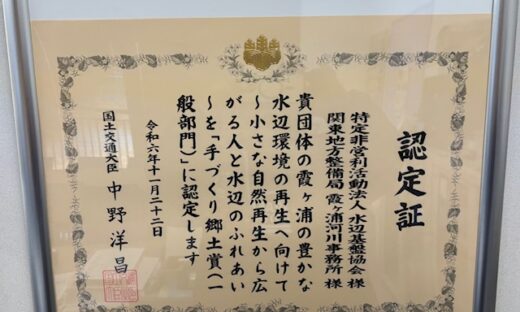 認定証
特定非営利活動法人 水辺基盤協会 様
関東地方整備局 霞ヶ浦河川事務所 様
貴団体の霞ヶ浦の豊かな
水辺環境の再生へ向けて
～小さな自然再生から広
がる人と水辺のふれあい
～を「手づくり郷土賞（一
般部門）」に認定します
令和六年十一月二十二日
国土交通大臣 中野洋昌